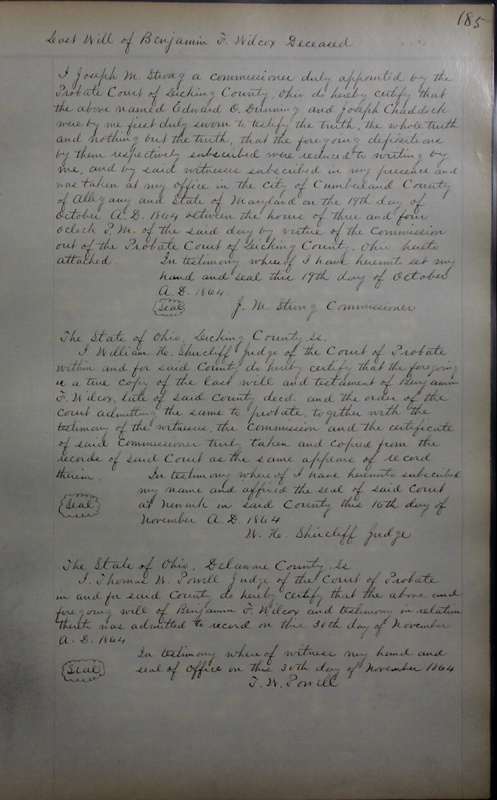 185
Last Will of Benjamin F. Wilcox Deceased
I Joseph M. Strong a commissioner duly appointed by the
Probate Court of Licking County, Ohio do hereby certify that
the above named Edward O. Dunning and Joseph Chaddock
were by me first duly sworn to testify the truth, the whole truth
and nothing but the truth, that the foregoing depositions
by them respectively subscribed were reduced to writing by
me, and by said witnesses subscribed in my presence and
was taken at my office in the City of Cumberland County
of Allegany and State of Maryland on the 19th day of
October A.D. 1864 between the hours of three and four
oclock P.M. of the said day by virtue of the Commission
out of the Probate Court of Licking County, Ohio hereto
attached. In testimony whereof I have hereunto set my
hand and seal this 19th day of October
A.D. 1864.
Seal J. M. Strong Commissioner
The State of Ohio, Licking County ss.
I William H. Shircliff Judge of the Court of Probate
within and for said County do hereby certify that the foregoing
is a true copy of the last will and testament of Benjamin
F. Wilcox, late of said County decd. and the order of the
court admitting the same to probate, together with the
testimony of the witnesses, the Commission and the certificate
of said Commissioner truly taken and copied from the
records of said Court as the same appears of record
therein. In testimony whereof I have hereunto subscribed
my name and affixed the seal of said Court
Seal at Newark in said County this 16th day of
November A.D. 1864
W. H. Shircliff Judge
The State of Ohio, Delaware County ss
I. Thomas W. Powell Judge of the Court of Probate
in and for said County do hereby certify that the above and
foregoing will of Benjamin F. Wilcox and testimony in relation
thereto was admitted to record on this 30th day of November
A.D. 1864
In testimony whereof witness my hand and
Seal seal of Office on this 30th day of November 1864
T. W. Powell